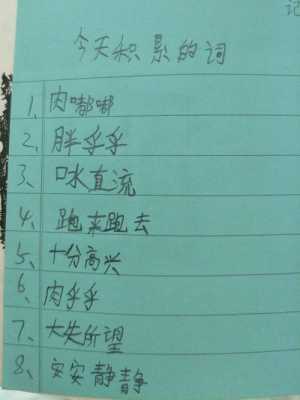 记
今天积累的词
1、肉嘟嘟
2、胖乎乎
3、口水直流
4、跑来跑去
5、十分高兴
6、肉乎乎
7、大失所望
8、安安静静